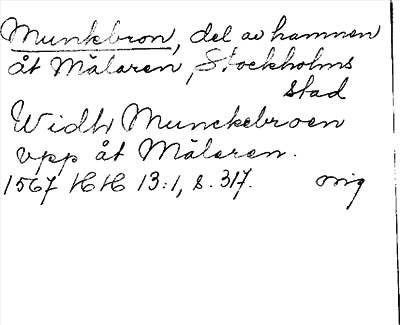 Munkbron, del av hamnen
åt Mälaren, Stockholms
stad
Widh Munckebroen
vpp åt Mälaren.
1567 HH 13:1, s. 317. orig